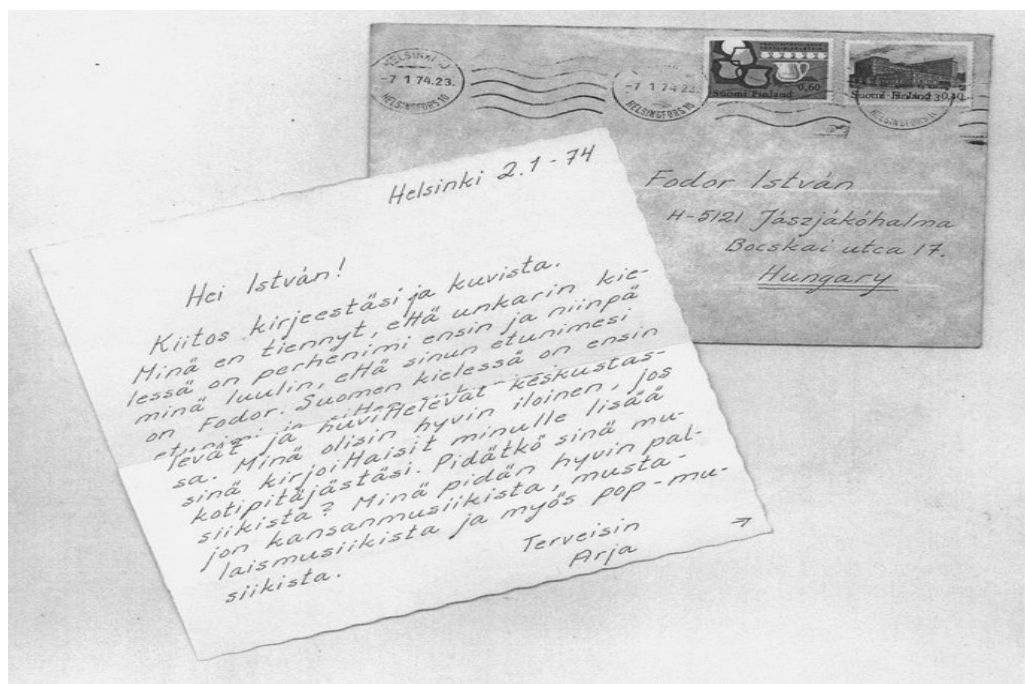 HELSINKI-J
-7 1 74.23.
HELSINGFORS 10
-7 1 74.23.
HELSINGFORS 10
0,60
Suomi Finland
Suomi-Finland 0,40
HELSINGFORS 10
Fodor István
H-5121 Jászjákóhalma
Bocskai utca 17.
Hungary
Helsinki 2.1-74
Hei István!
Kiitos kirjeestäsi ja kuvista.
Minä en tiennyt, että unkarin kie-
lessä on perhenimi ensin ja niinpä
minä luulin, että sinun etunimesi
on Fodor. Suomen kielessä on ensin
etunimi ja
levät ja huvittelevat keskustas-
sa. Minä olisin hyvin iloinen, jos
sinä kirjoittaisit minulle lisää
kotipitäjästäsi. Pidätkö sinä mu-
siikista? Minä pidän hyvin pal-
jon kansanmusiikista, musta-
laismusiikista ja myös pop-mu-
siikista.
Terveisin
Arja